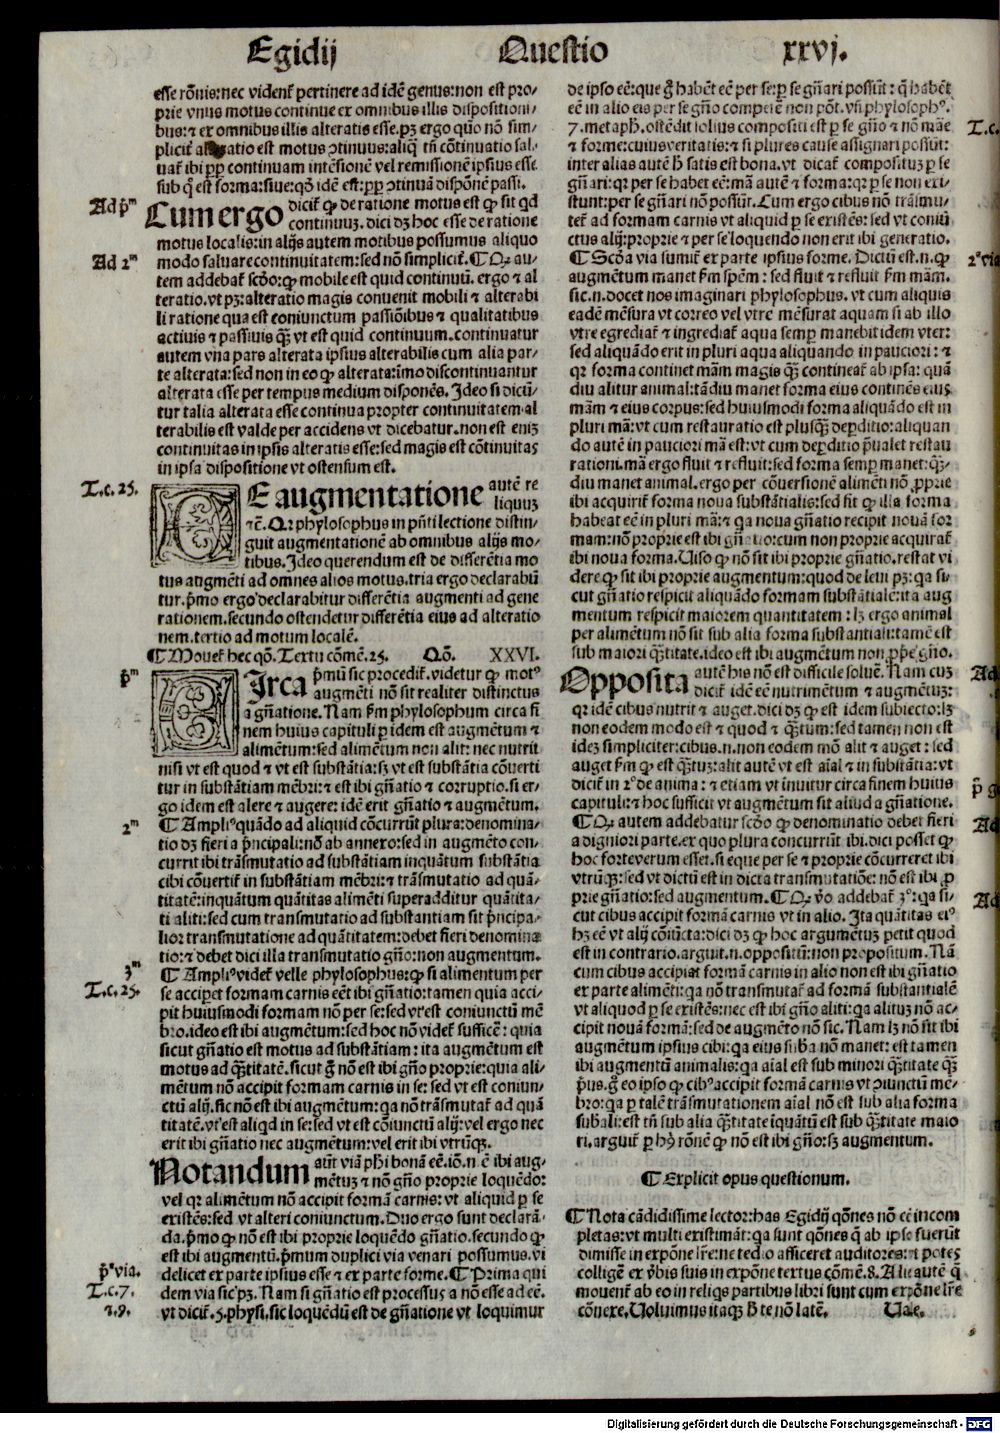 Egidij Questio xxvj.
esse rõnis: nec vident᷑ pertinere ad idẽ genus: non est pro⸗
prie vnus motus continue ex omnibus illis dispositioni⸗
bus: ⁊ ex omnibus illis alteratis esse. pꝫ ergo quõ nõ sim⸗
plicit᷑ alteratio est motus ↄtinuus: aliq̃ tñ cõtinuatio sal⸗
uat᷑ ibi ꝓp continuam intẽsionẽ vel remissionẽ ipsius esse
sub q̃ est forma: siue: qõ idẽ est: ꝓp ↄtinuã dispõnẽ passi.
Ad p̃ᵐ
Cum ergo dicit᷑ ꝙ de ratione motus est ꝙ sit qd
continuuꝫ. dici dꝫ hoc esse de ratione
motus localis: in alijs autem motibus possumus aliquo
Ad 2ᵐ
modo saluare continuitatem: sed nõ simplicit᷑. ¶ Qꝛ au⸗
tem addebat᷑ scďo: ꝙ mobile est quid continuũ. ergo ⁊ al
teratio. vt pꝫ: alteratio magis conuenit mobili ⁊ alterabi
li ratione qua est coniunctum passiõibus ⁊ qualitatibus
actiuis ⁊ passiuis q̃ꝫ vt est quid continuum. continuatur
autem vna pars alterata ipsius alterabilis cum alia par⸗
te alterata: sed non in eo ꝙ alterata: ĩmo discontinuantur
alterata esse per tempus medium disponẽs. Ideo si dicũ⸗
tur talia alterata esse continua propter continuitatem al
terabilis est valde per accidens vt dicebatur. non est enim
continuitas in ipsis alteratis esse: sed magis est cõtinuitas
in ipsa dispositione vt ostensum est.
T.c. 25.
DE augmentatione autẽ re
liquuꝫ
⁊c̃. Qꝛ phylosophus in pñti lectione distin⸗
guit augmentationẽ ab omnibus alijs mo⸗
tibus. Ideo querendum est de differẽtia mo
tus augmẽti ad omnes alios motus. tria ergo declarabũ
tur. p̃mo ergo declarabitur differẽtia augmenti ad gene
rationem. secundo ostendetur differẽtia eius ad alteratio
nem. tertio ad motum localẽ.
¶ Mouet᷑ hec qõ. Tertu cõmẽ. 25. Qõ. XXVI.
p̃ᵐ
CIrca p̃mũ sic procedit᷑. videtur ꝙ motꝰ
augmẽti nõ sit realiter distinctus
a gñatione. Nam ẜm phylosophum circa fi
nem huius capituli ꝑ idem est augmẽtum ⁊
alimẽtum: sed alimẽtum non alit: nec nutrit
nisi vt est quod ⁊ vt est substãtia: sꝫ vt est substãtia cõuerti
tur in substãtiam mẽbri: ⁊ est ibi gñatio ⁊ corruptio. si er⸗
go idem est alere ⁊ augere: idẽ erit gñatio ⁊ augmẽtum.
2ᵐ
¶ Ampliꝰ quãdo ad aliquid cõcurrũt plura: denomina⸗
tio dꝫ fieri a p̃ncipali: nõ ab annexo: sed in augmẽto con⸗
currit ibi trãsmutatio ad substãtiam inquãtum substãtia
cibi cõuertit᷑ in substãtiam mẽbri: ⁊ trãsmutatio ad quã⸗
titatẽ: inquãtum quãtitas alimẽti superadditur quãtita⸗
ti aliti: sed cum transmutatio ad substantiam sit p̃ncipa⸗
lior transmutatione ad quãtitatem: debet fieri denomina
tio: ⁊ debet dici illa transmutatio gñatio: non augmentum.
3ᵐ
¶ Ampliꝰ videt᷑ velle phylosophus: ꝙ si alimentum per
T.c. 25.
se acciperet formam carnis eẽt ibi gñatio: tamen quia acci⸗
pit huiusmodi formam nõ per se: sed vt est coniunctũ mẽ
bro. ideo est ibi augmẽtum: sed hoc nõ videt᷑ sufficẽ: quia
sicut gñatio est motus ad substãtiam: ita augmẽtum est
motus ad q̃titatẽ. sicut g̃ nõ est ibi gñatio proprie: quia ali⸗
mẽtum nõ accipit formam carnis in se: sed vt est coniun⸗
ctũ alij. sic nõ est ibi augmẽtum: qa nõ trãsmutat᷑ ad quã
titatẽ. vt est aliqd in se: sed vt est cõiunctũ alij: vel ergo nec
erit ibi gñatio nec augmẽtum: vel erit ibi vtrũqꝫ.
Notandum aũt viã phi bonã eẽ. iõ. n̄ ẽ ibi aug⸗
mẽtuꝫ ⁊ nõ gñatio proprie loquẽdo:
vel qꝛ alimẽtum nõ accipit formã carnis: vt aliquid ꝑ se
existẽs: sed vt alteri coniunctum. Duo ergo sunt declarã⸗
da. p̃mo ꝙ nõ est ibi proprie loquẽdo gñatio. secundo ꝙ
est ibi augmentũ. p̃mum duplici via venari possumus. vi
p̃ᵃ via.
delicet ex parte ipsius esse ⁊ ex parte forme. ¶ Prima qui
T.c. 7.
dem via sic pꝫ. Nam si gñatio est processus a nõ esse ad eẽ.
⁊. 9.
vt dicit᷑. 5. physi. sic loquẽdũ est de gñatione vt loquimur
de ipso eẽ: que g̃ habẽt eẽ per se: ꝑ se gñari possũt: q̃ habẽt
eẽ in alio eis per se gñatio competẽ non põt. vñ phylosophꝰ.
T.c.
7. metaph. ostẽdit ꝙ solius compositi est ꝑ se gñatio ⁊ nõ mãe
⁊ forme: cuius veritatis: ⁊ si plures cause assignari possũt:
inter alias autẽ h̃ satis est bona. vt dicat᷑ compositũ ꝑ se
gñari: qꝛ per se habet eẽ: mã autẽ ⁊ forma: qꝛ ꝑ se non exi⸗
stunt: per se gñari nõ possũt. Cum ergo cibus nõ trãsmu⸗
tet᷑ ad formam carnis vt aliquid ꝑ se existẽs: sed vt coniũ
ctus alij: proprie ⁊ per se loquendo non erit ibi generatio.
2ᵃ via
¶ Scďa via sumit᷑ ex parte ipsius forme. Dictũ est. n. ꝙ
augmẽtum manet ẜm spẽm: sed fluit ⁊ refluit ẜm mãm.
sic. n. docet nos imaginari phylosophus. vt cum aliquis
eadẽ mẽsura vt correo vel vtre mẽsurat aquam si ab illo
vtre egrediat᷑ ⁊ ingrediat᷑ aqua semꝑ manebit idem vter:
sed aliquãdo erit in pluri aqua aliquando in pauciori: ⁊
qꝛ forma continet mãm magis q̃ꝫ contineat᷑ ab ipsa: quã
diu alitur animal: tãdiu manet forma eius continẽs eius
mãm ⁊ eius corpus: sed huiusmodi forma aliquãdo est in
pluri mã: vt cum restauratio est plusq̃ꝫ deꝑditio: aliquan
do autẽ in pauciori mã est: vt cum deꝑditio p̃ualet restau
rationi. mã ergo fluit ⁊ refluit: sed forma semꝑ manet: q̃ꝫ⸗
diu manet animal. ergo per cõuersionẽ alimẽti nõ ꝓprie
ibi acquirit᷑ forma noua substãtialis: sed fit ꝙ illa forma
habeat eẽ in pluri mã: ⁊ qa noua gñatio recipit nouã for
mam: nõ proprie est ibi gñatio: cum non proprie acquirat᷑
ibi noua forma. Viso ꝙ nõ sit ibi proprie gñatio. restat vi
dere ꝙ sit ibi proprie augmentum: quod de leui pꝫ: qa si⸗
cut gñatio respicit aliquãdo formam substãtialẽ: ita aug
mentum respicit maiorem quantitatem: lꝫ ergo animal
per alimẽtum nõ sit sub alia forma substantiali: tamẽ est
sub maiori q̃titate. ideo est ibi augmẽtum non ꝓpe gñatio.
Ad
Opposita autẽ his nõ est difficile soluẽ. Nam cuꝫ
dicit᷑ idẽ eẽ nutrimẽtum ⁊ augmẽtuꝫ:
qꝛ idẽ cibus nutrit ⁊ auget. dici dꝫ ꝙ est idem subiecto: lꝫ
non eodem modo est ⁊ quod ⁊ q̃tum: sed tamen non est
ideꝫ simpliciter: cibus. n. non eodem mõ alit ⁊ auget: sed
auget ẜm ꝙ est q̃tuꝫ: alit autẽ vt est aĩal ⁊ in substãtia: vt
dicit᷑ in 2º de anima: ⁊ etiam vt innuitur circa finem huius
capituli: ⁊ hoc sufficit vt augmẽtum sit aliud a gñatione.
Ad
¶ Qꝛ autem addebatur scďo ꝙ denominatio debet fieri
a digniori parte. ex quo plura concurrũt ibi. dici posset ꝙ
hoc forte verum esset. si eque per se ⁊ proprie cõcurreret ibi
vtrũqꝫ: sed vt dictũ est in dicta transmutatiõe: nõ est ibi ꝓ
Ad
prie gñatio: sed augmentum. ¶ Qꝛ vo addebat᷑ 3º: qa si⸗
cut cibus accipit formã carnis vt in alio. Ita quãtitas eiꝰ
hꝫ eẽ vt alij cõiũcta: dici dꝫ ꝙ hoc argumẽtuꝫ petit quod
est in contrario. arguit. n. oppositũ: non propositum. Nã
cum cibus accipiat formã carnis in alio non est ibi gñatio
ex parte alimẽti: qa nõ transmutat᷑ ad formã substantialẽ
vt aliquod ꝑ se existẽs: nec est ibi gñatio aliti: qa alituꝫ nõ ac⸗
cipit nouã formã: sed de augmẽto nõ sic. Nam lꝫ nõ sit ibi
augmẽtum ipsius cibi: qa eius suba nõ manet: est tamen
ibi augmentũ animalis: qa aĩal est sub minori q̃titate q̃ꝫ
p̃us. g̃ eo ipso ꝙ cibꝰ accipit formã carnis vt ↄiunctũ mẽ⸗
bro: qa ꝑ talẽ trãsmutationem aĩal nõ est sub alia forma
subali: est tñ sub alia q̃titate inquãtũ est sub q̃titate maio
ri. arguit᷑ ꝑ hꝫ rõnẽ ꝙ nõ est ibi gñatio: sꝫ augmentum.
¶ Explicit opus questionum.
¶ Nota cãdidissime lector: has Egidij qõnes nõ eẽ incom
pletas: vt multi existimãt: qa sunt qõnes q̃ ab ipso fuerũt
dimisse in expõne lr̃e: ne tedio afficeret auditores: ⁊ potes
colligẽ ex v̓bis suis in expõne textus cõmẽ. 8. Alie autẽ q̃
mouent᷑ ab eo in reliqs partibus libri sunt cum expõne lr̃e
cõnexe. Voluimus itaqꝫ h̃ te nõ latẽ. Vale.
Digitalisierung gefördert durch die Deutsche Forschungsgemeinschaft - DFG